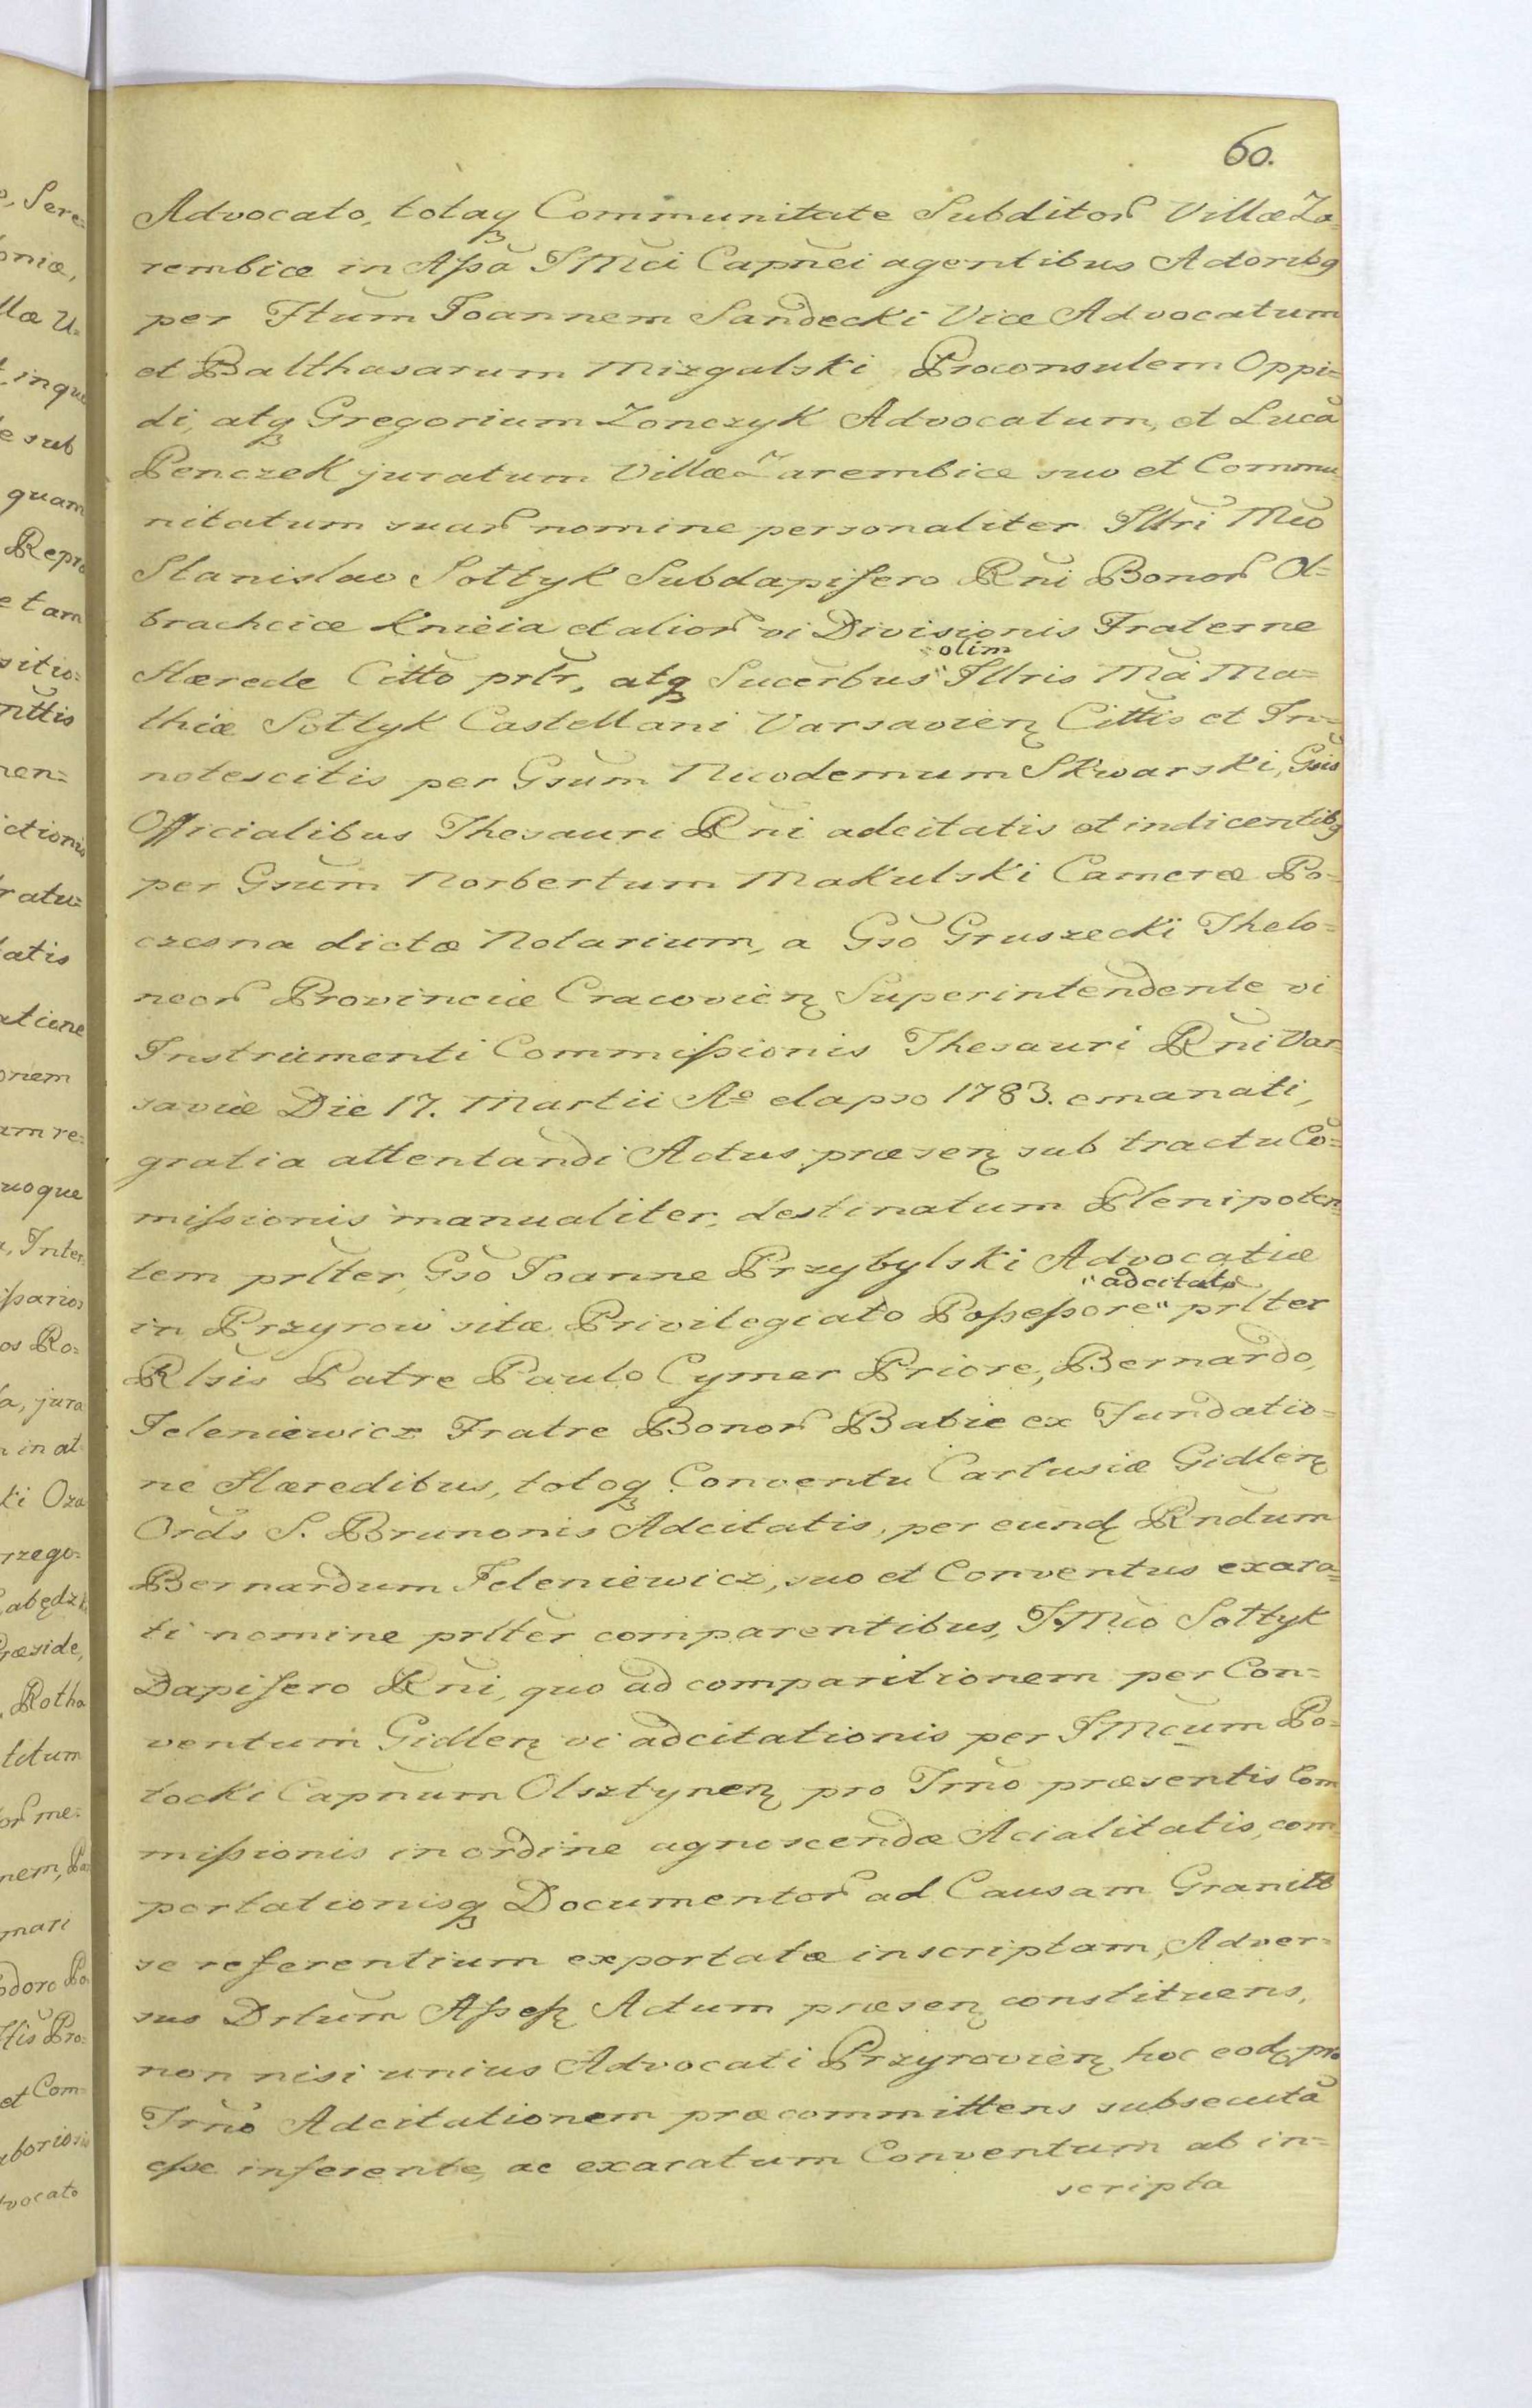 60.
Advocato, totaq Communitate Subditor Villæ Za=
rembice in Aßa IMci Capnei agentibus Actoribq
per Ftum Joannem Sandecki Vice Advocatum
et Balthasarum Mizgalski Proconsulem Oppi=
di, atq Gregorium Zonczyk Advocatum, et Lucã
Penczek juratum Villæ Zarembice suo et Commu=
nitatum suar nomine personaliter Illri Mco
Stanislao Sołtyk Subdapifero Rni Bonor Ol=
brachcice Knieia et alior vi Divisionis Fraterne
Hærede Citto prlr, atq Sucerbus "olim" Illris Mã Ma=
thiæ Sołtyk Castellani Varsavien Cittis et In=
notescitis per Gsum Nicodemum Skwarski, Gsis
Officialibus Thesauri Rni adcitatis et indicentibq
per Gsum Norbertum Makulski Cameræ Po=
czesna dictæ Notarium, a Gso Gruszecki Thelo=
neor Provinciæ Cracovien Superintendente vi
Instrumenti Commißionis Thesauri Rni Var=
saviæ Die 17. Martii Ao elapso 1783. emanati,
gratia attentandi Actus præsen sub tractu Co=
mißionis manualiter, destinatum Plenipoten=
tem prlter, Gso Joanne Przybylski Advocatiæ
in Przyrow sitæ Privilegiato Poßeßore "adcitato" prlter
Rlsis Patre Paulo Cymer Priore, Bernardo
Jeleniewicz Fratre Bonor Babie ex Fundatio=
ne Hæredibus, totoq Conventu Cartusiæ Gidlen
Ords S. Brunonis Adcitatis, per eund Rndum
Bernardum Jeleniewicz, suo et Conventus exara=
ti nomine prlter comparentibus, IMco Sołtyk
Dapifero Rni, quo ad comparitionem per Con=
ventum Gidlen vi adcitationis per IMcum Po=
tocki Capnum Olsztynen pro Trno præsentis Com=
mißionis in ordine agnoscendæ Acialitatis, com=
portationisq Documentor ad Causam Granitt
se referentium exportatæ inscriptam, Adver=
sus Drtum Aßeß Actum præsen constituens,
non nisi unius Advocati Przyrovien hoc eod pro
Trno Adcitationem præcommittens subsecutã
eße inferente, ac exaratum Conventum ab in=
scripta